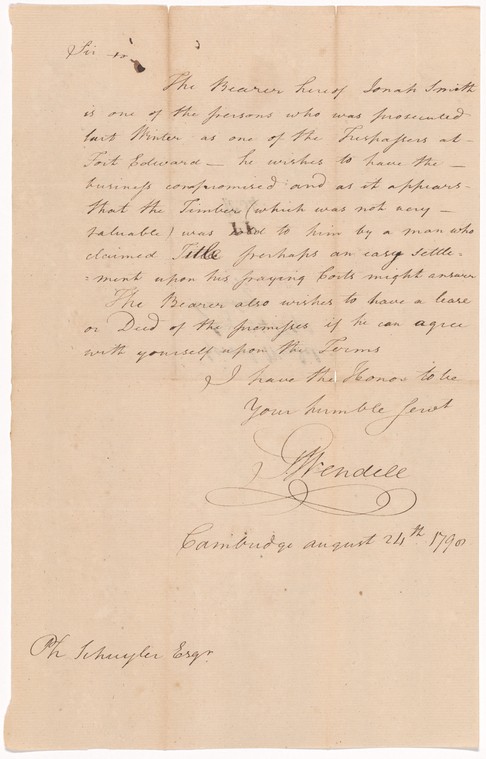 Sir
The Bearer hereof Jonah Smith
is one of the persons who was prosecuted
last Winter as one of the Trespassers at
Fort Edward — he wishes to have the —
business compromised and as it appears
that the Timber (which was not very —
valuable) was to him by a man who
claimed Title perhaps an easy settle-
=ment upon his paying Costs might answer
The Bearer also wishes to have a lease
or Deed of the premises if he can agree
with yourself upon the Terms
I have the Honor to be
Your humble Servt
Wendell
Cambridge august 24th 1790
Ph Schuyler Esqr